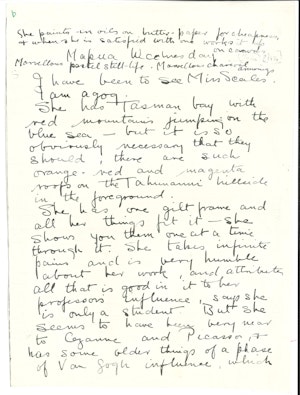 She paints in oils on butter-paper for cheapness,
& when she is satisfied with one works it up
on canvas
Mapua Wednesday
Marvellous pastel still-life. Marvellous charcoal drawings
I have been to see Miss Scales.
I am agog.
She has Tasman bay with
red mountains jumping on the
blue sea – but it is so
obviously necessary that they
should, there are such
orange-red and magenta
roofs on the Tahunanui hillside
in the foreground.
She has one gilt frame and
all her things fit it – she
shows you them one at a time
through it. She takes infinite
pains and is very humble
about her work, and attributes
all that is good in it to her
professors influence, says she
is only a student. But she
seems to have been very near
to Cezanne and Picasso, &
has some older things of a phase
of Van Gogh influence, which